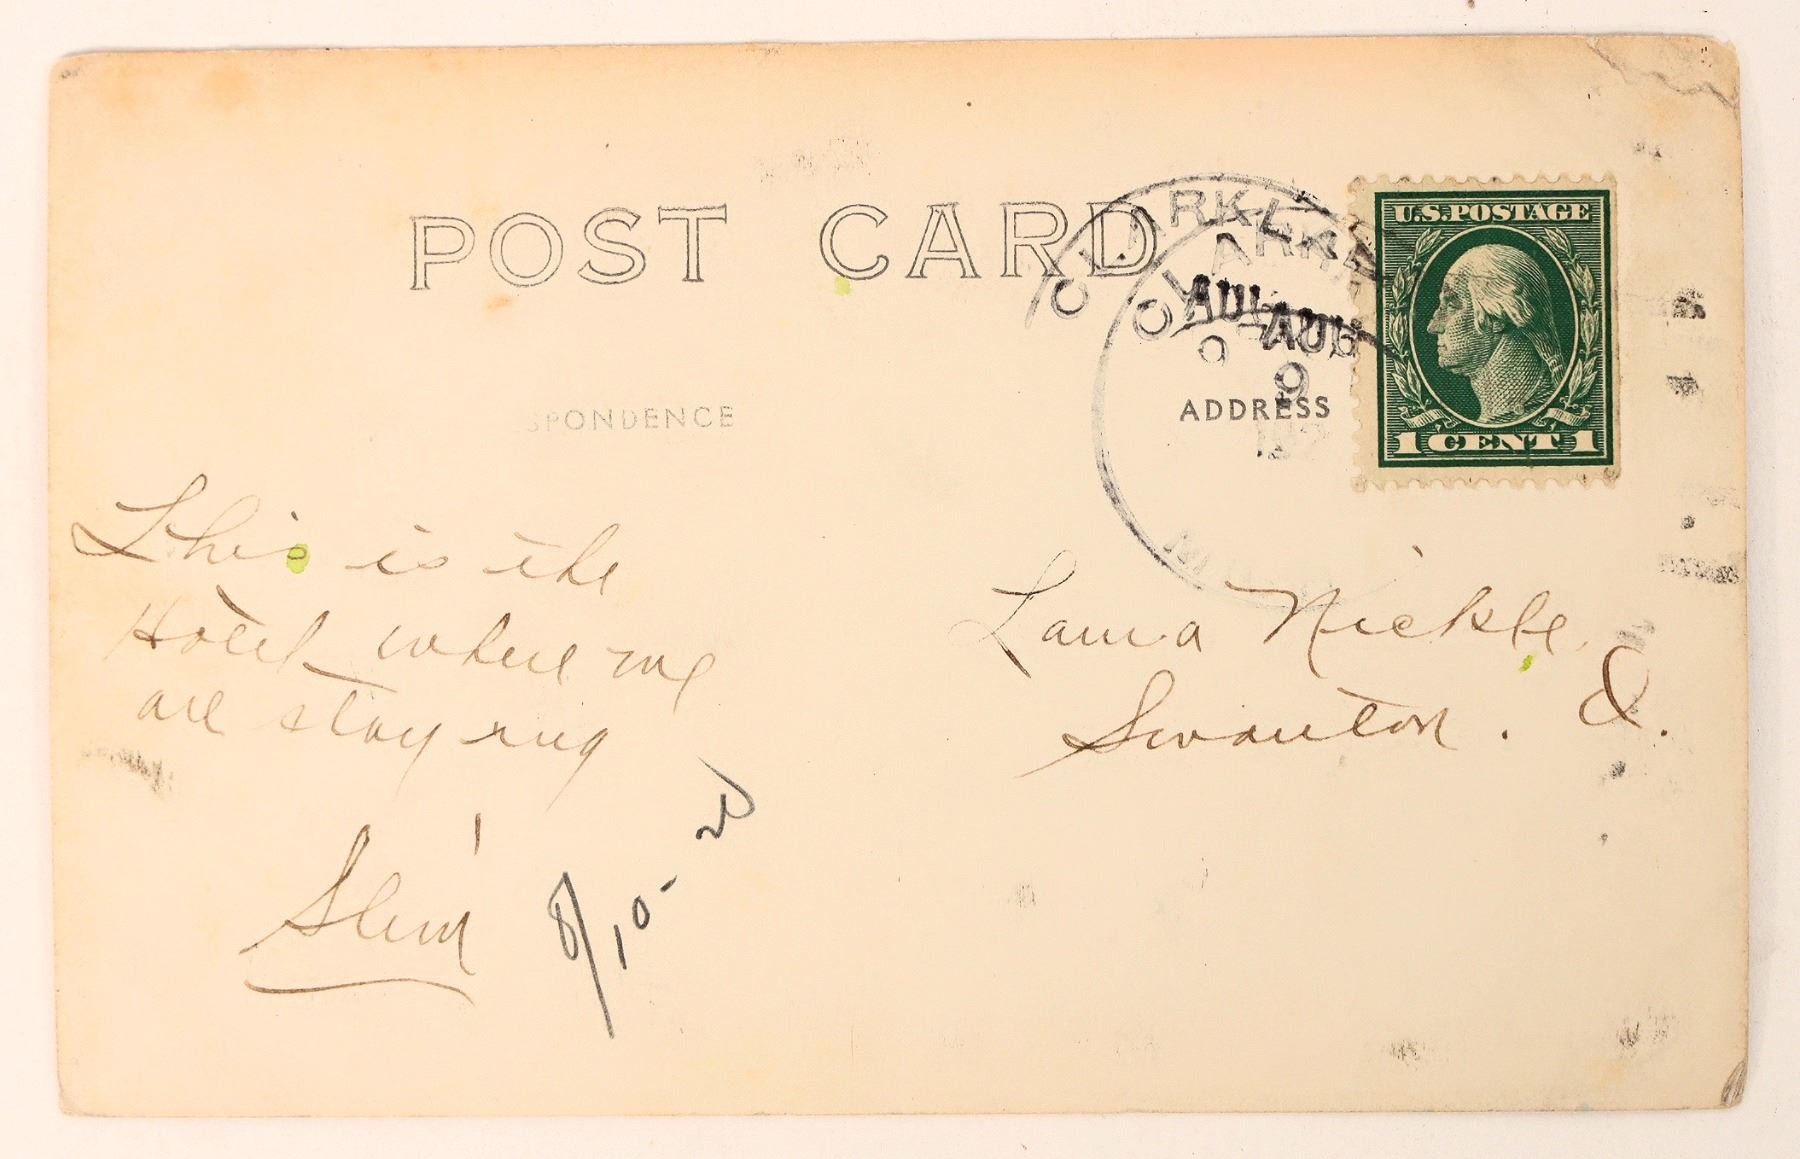 POST CARD
CLARK
CLARK
AUG
AUG
9
9
U.S. POSTAGE
1 CENT 1
SPONDENCE
ADDRESS
This is the
Hotel where we
are staying
Slim
8/10-20
Laura Nickle,
Swanton. O.